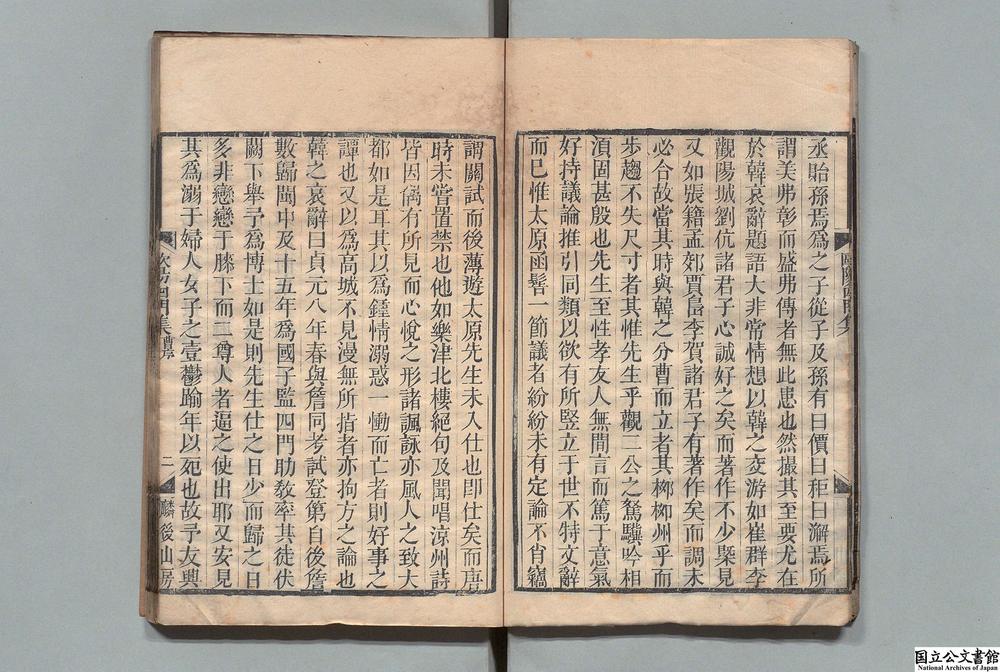 丞貽孫焉爲之子從子及孫有曰價曰秬曰澥焉所
謂美弗彰而盛弗傳者無此患也然撮其至要尤在
於韓哀辭題語大非常情想以韓之交游如崔群李
觀陽城劉伉諸君子心誠好之矣而著作不少槩見
又如張籍孟郊賈島李賀諸君子有著作矣而調未
必合故當其時與韓之分曹而立者其柳柳州乎而
步趨不失尺寸者其惟先生乎觀二公之駑驥吟相
湏固甚殷也先生至性孝友人無間言而篤于意氣
好持議論推引同類以欲有所竪立于世不特文辭
而已惟太原函髻一節議者紛紛未有定論不肖竊
謂關試而後薄遊太原先生未入仕也卽仕矣而唐
時未甞置禁也他如樂津北樓絕句及聞唱涼州詩
皆因偶有所見而心悅之形諸諷詠亦風人之致大
都如是耳其以爲鍾情溺惑一慟而亡者則好事之
譚也又以爲高城不見漫無所指者亦拘方之論也
韓之哀辭曰貞元八年春與詹同考試登第自後詹
數歸閩中及十五年爲國子監四門助敎率其徒伏
闕下舉予爲博士如是則先生仕之日少而歸之日
多非戀戀于膝下而二尊人者逼之使出耶又安見
其爲溺于婦人女子之壹鬱踰年以死也故予友興
歐陽四門集
二
麟後山房